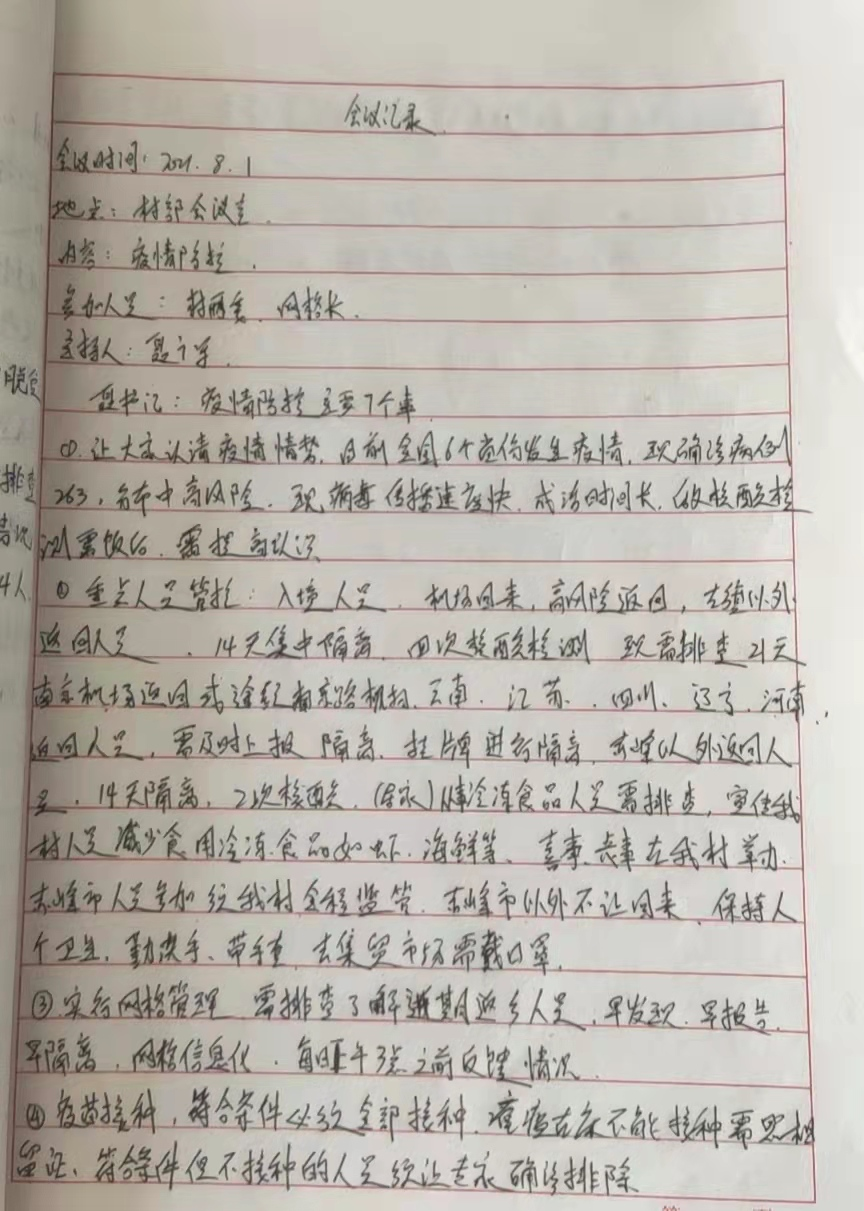 会议记录
会议时间：2021.8.1
地点：村部会议室
内容：疫情防控.
参加人员：村两委、网格长.
主持人：聂
聂书记：疫情防控主要7个事
①.让大家认清疫情情势.目前全国6个省份发生疫情，现确诊病例
263，分布中高风险.现病毒传播速度快，成活时间长，做核酸检
测需饭后，需提高认识
② 重点人员管控：入境人员，机场回来，高风险返回，赤峰以外
返回人员，14天集中隔离，四次核酸检测 现需排查21天
南京机场返回或途经南京路机场.云南.江苏.四川、辽宁、河南
返回人员，需及时上报 隔离、挂牌进行隔离，赤峰以外返回人
员，14天隔离，2次核酸，(居家)从事冷冻食品人员需排查，宣传我
村人员减少食用冷冻食品如虾、海鲜等、喜事、丧事在我村举办.
赤峰市人员参加 我村全程监管，赤峰市以外不让回来，保持人
个卫生，勤洗手、带手套，去集贸市场需戴口罩.
③.实行网格管理 需排查了解返乡人员，早发现.早报告.
早隔离，网格信息化.每日下午3点之前反馈情况.
④ 疫苗接种，符合条件必须全部接种.瘫痪在床不能接种需照相
留证、符合条件但不接种的人员须让专家确诊排除
排查
4人